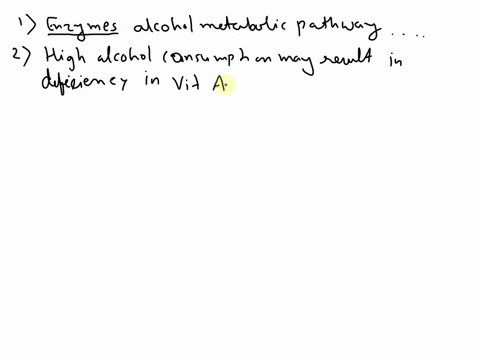 1) Enzymes alcohol metabolic pathway ....
2) High alcohol consumption may result in
deficiency in Vit A